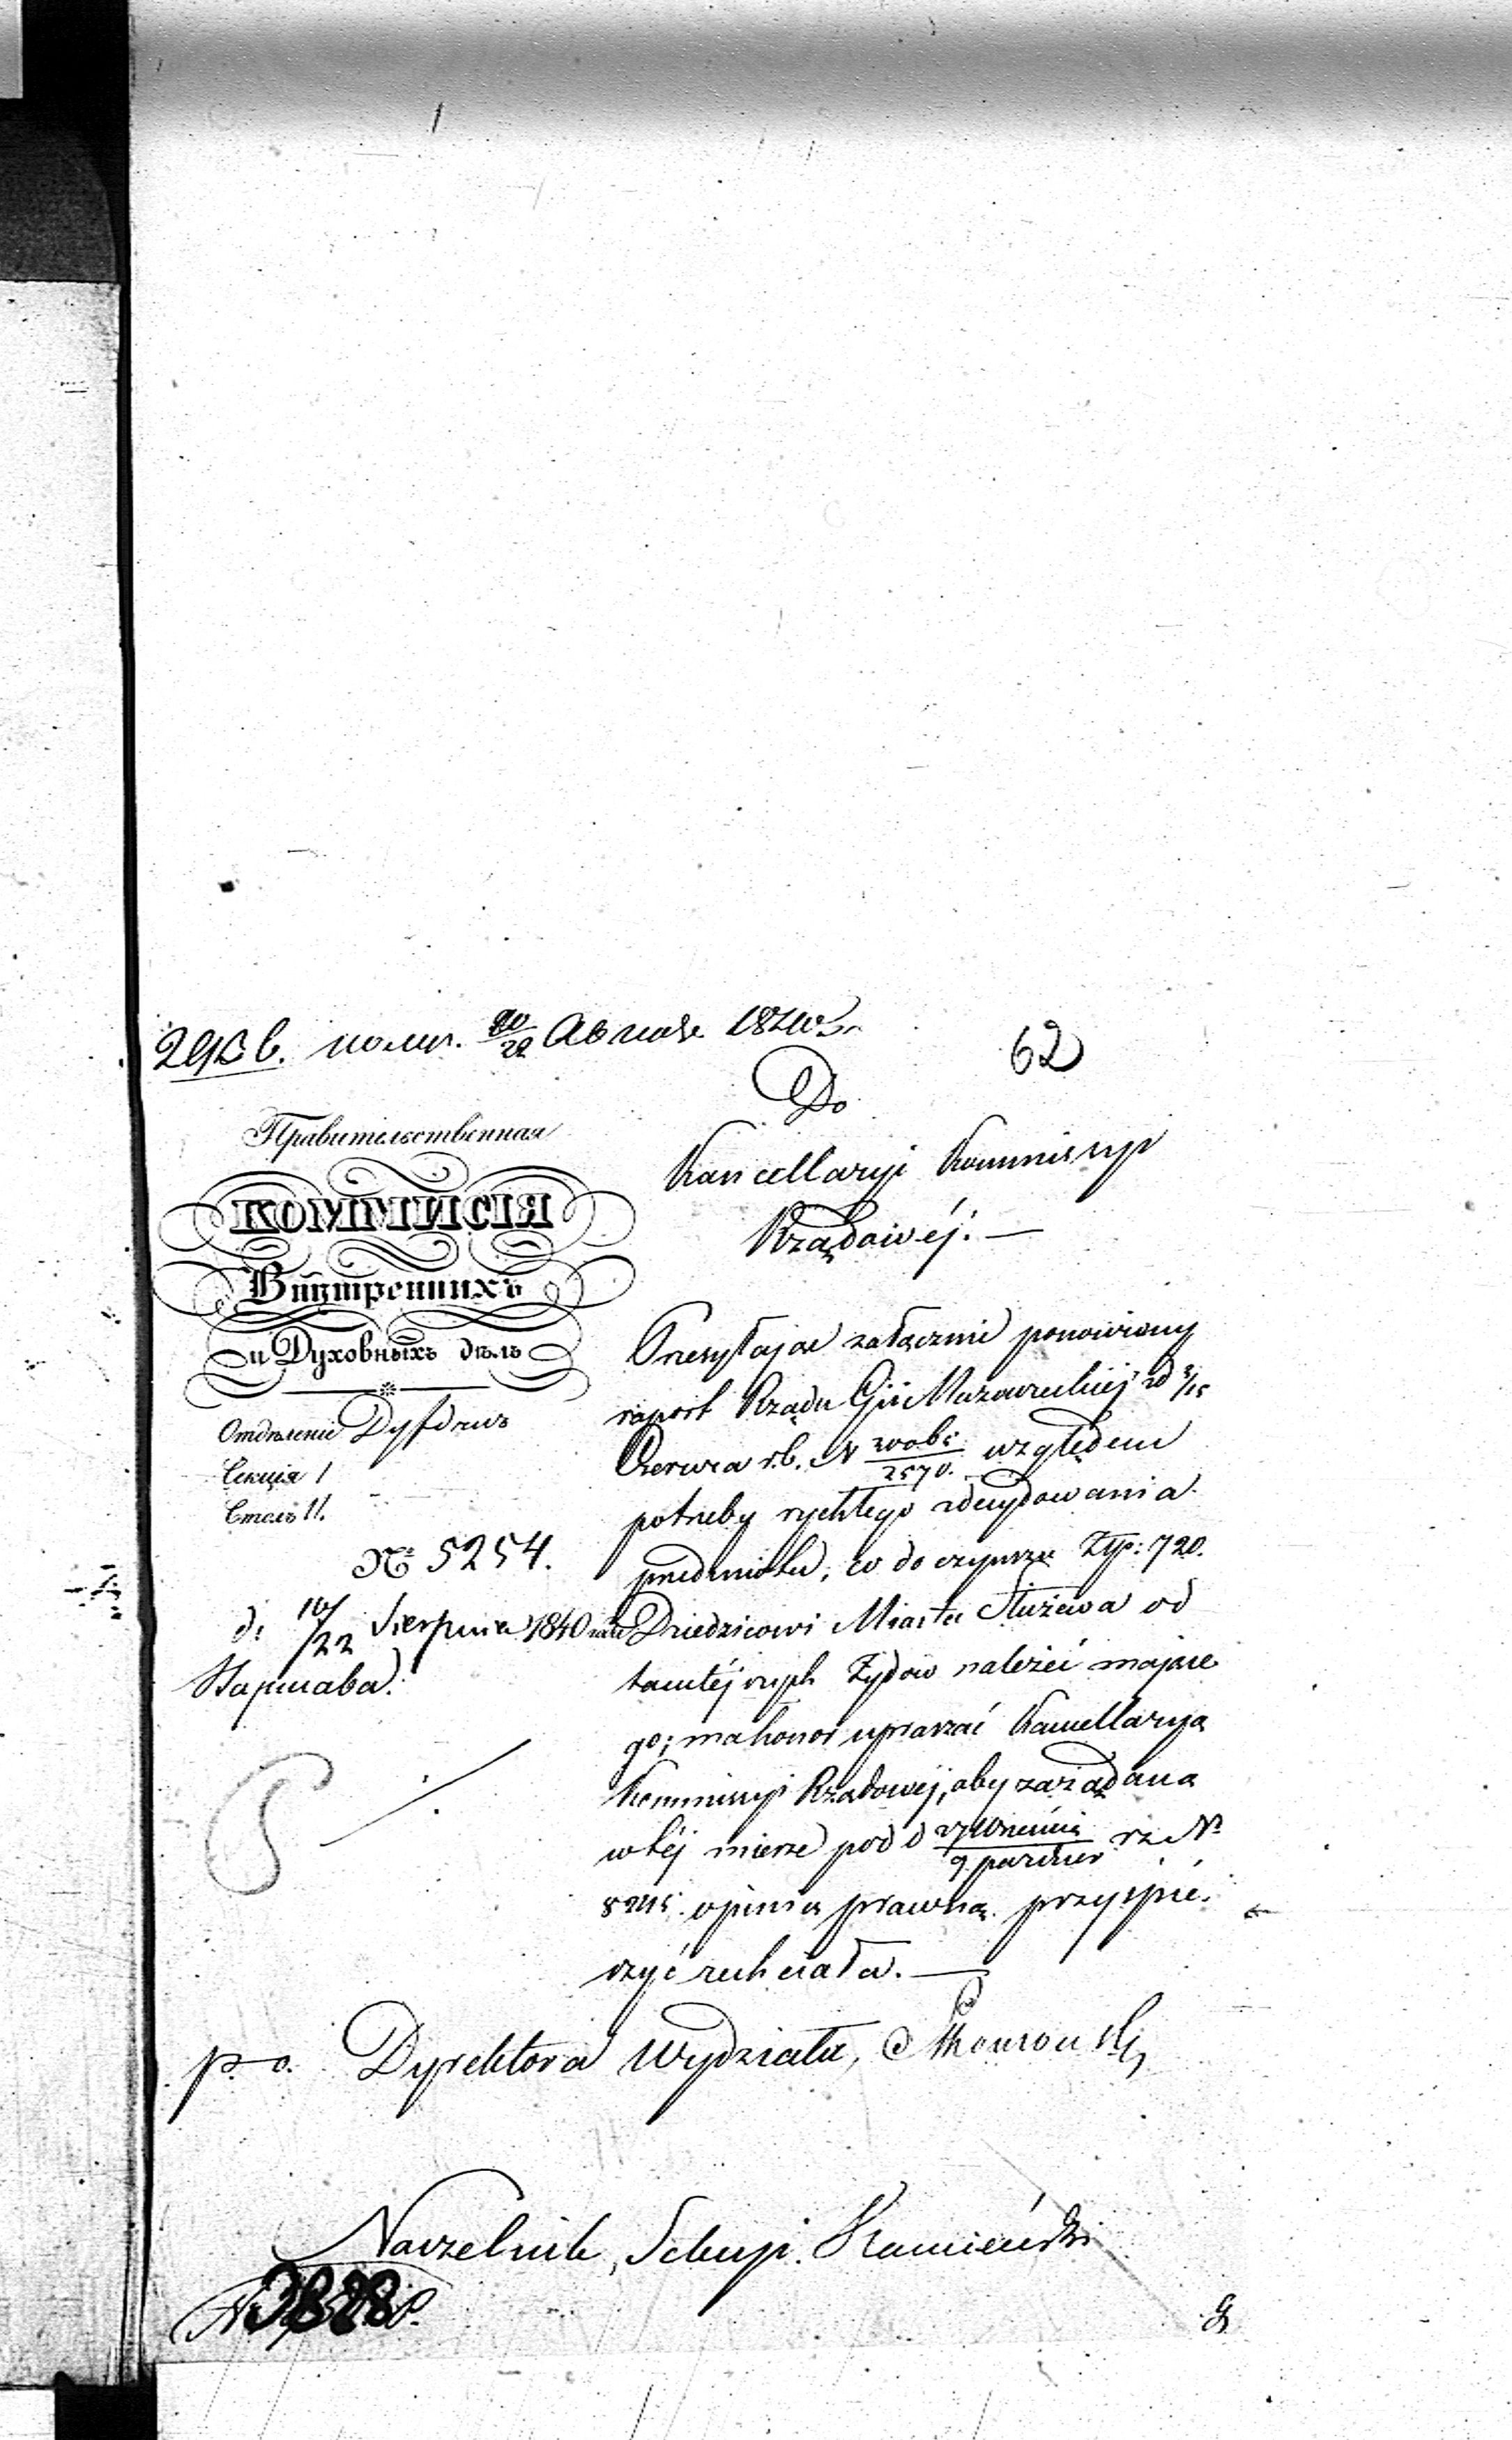 62
Do
Kancellaryi Kommissyi
Rządowéj. —
Правительственная
КОММИСІЯ
Внутреннихъ
и Духовныхъ дѣлъ
Отдѣленіе
Секція I
Столъ II.
№ 5254.
d: 10/22 Sierpnia 1840
Варшава.
Przesyłając załącznie ponowiony
raport Rządu Gii Mazowieckiéj od 3/15
Czerwca r.b. N względem
potrzeby rychłego zdecydowania
przedmiotu, co do czynszu Złp: 720.
Dziedzicowi Miasta Służewa od
tamtéjszych Żydów należeć mające
go; ma honor upraszać Kancellaryą
Kommissyi Rządowéj, aby zażądaną
w téj mierze pod d 27 Września / 9 Paździer r.z. N°
8245. opinią prawną przyspie
szyć zechciała. —
p.o. Dyrektora Wydziału,
Naczelnik Sekcyi. Kamieński